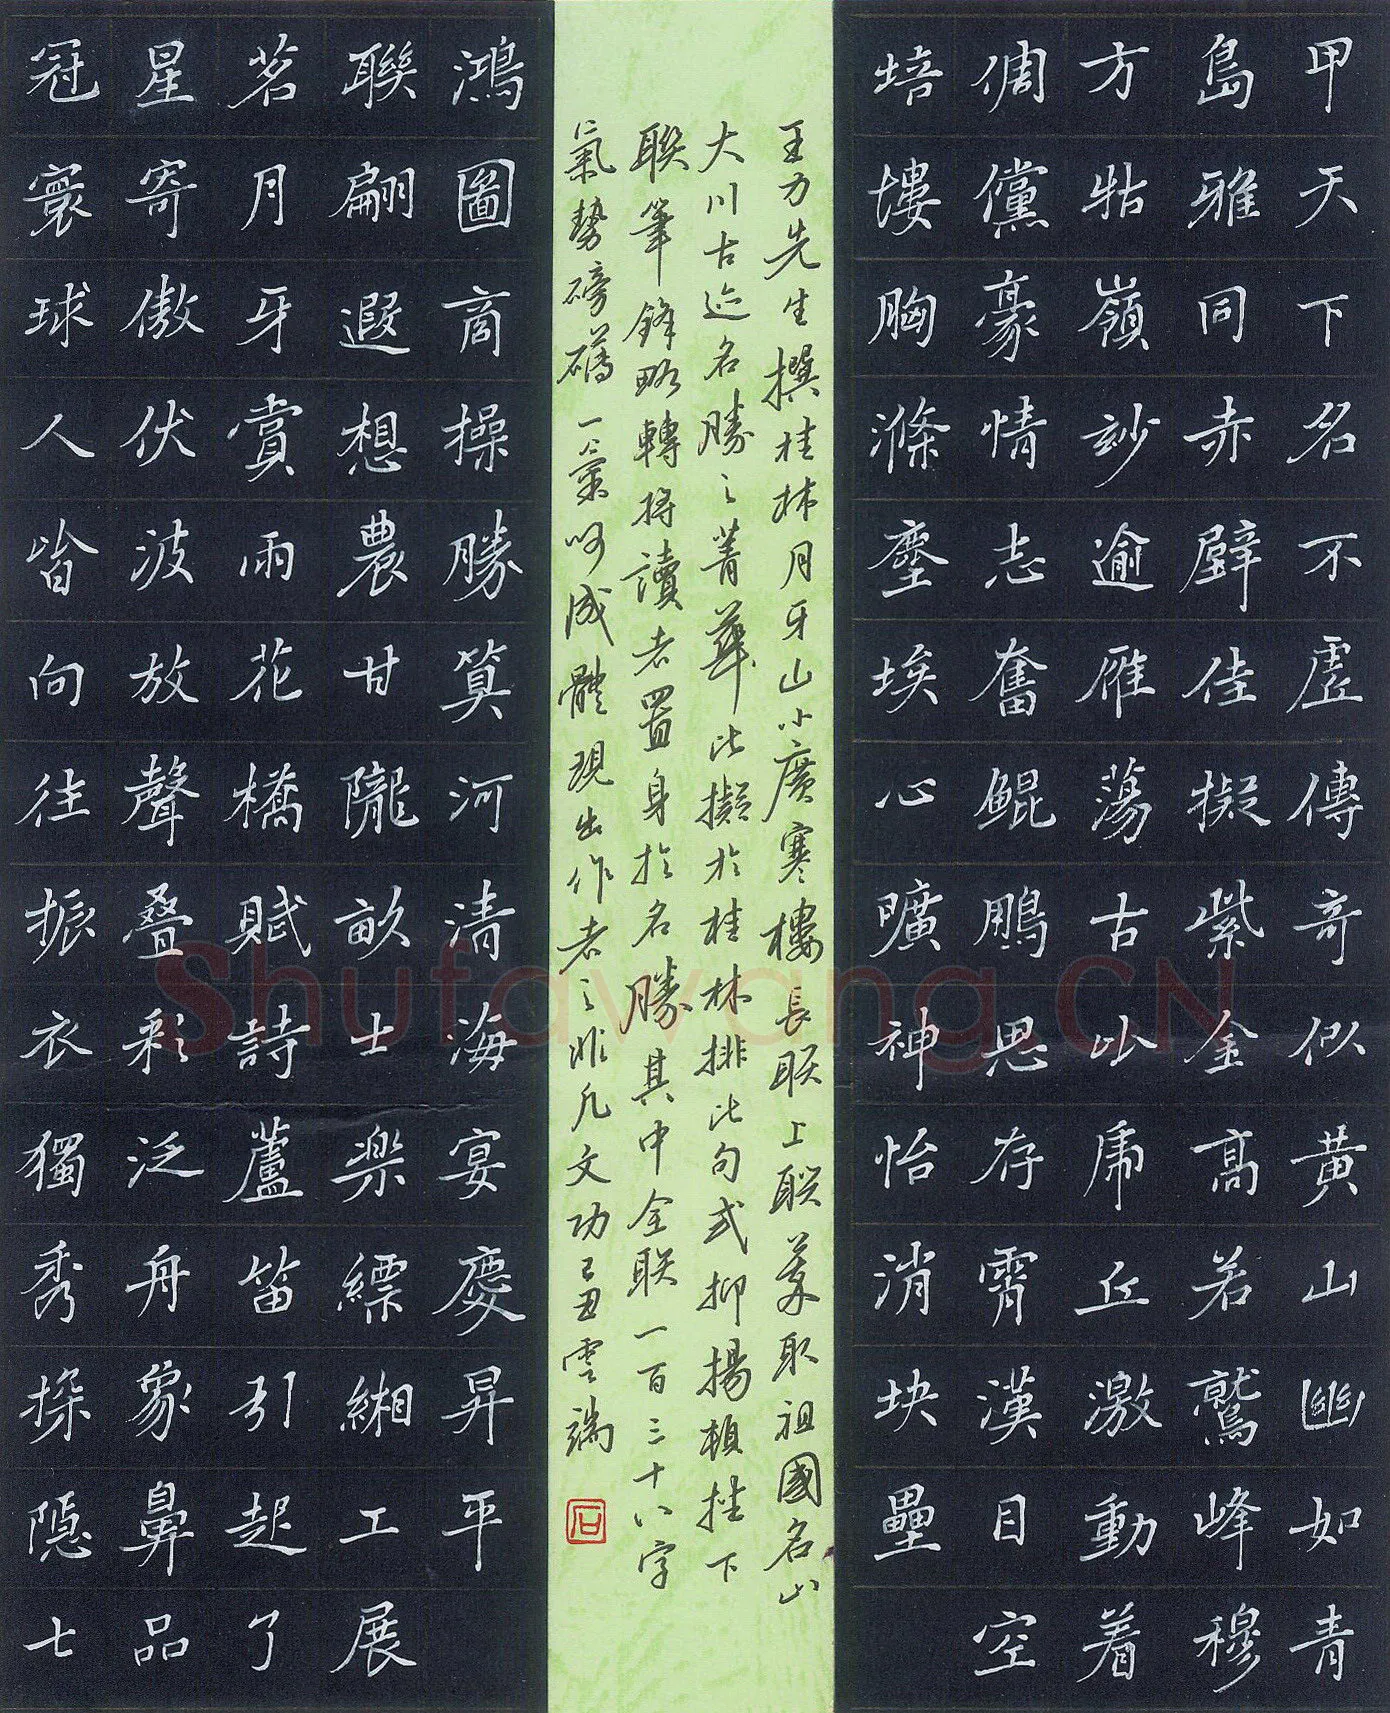 甲天下名不虛傳奇似黃山幽如青
島雅同赤壁佳擬紫金高若鷲峰穆
方牯嶺妙逾雁蕩古比虎丘激動着
倜儻豪情志奮鯤鵬思存霄漢目空
培塿胸滌塵埃心曠神怡消块壘
冠寰球人皆向往振衣獨秀探隱七
星寄傲伏波放聲叠彩泛舟象鼻品
茗月牙賞雨花橋賦詩蘆笛引起了
聯翩遐想農甘隴畝士楽縹緗工展
鴻圖商操勝算河清海宴慶昇平
王力先生撰桂林月牙山小廣寒樓 長联上聯萃取祖國名山
大川古迹名勝之菁華比擬於桂林排比句式抑揚頓挫下
聯筆鋒略轉将讀者置身於名勝其中全联一百三十八字
氣勢磅礴一氣呵成體現出作者之非凡文功己丑雲端
石
Shufawang.CN